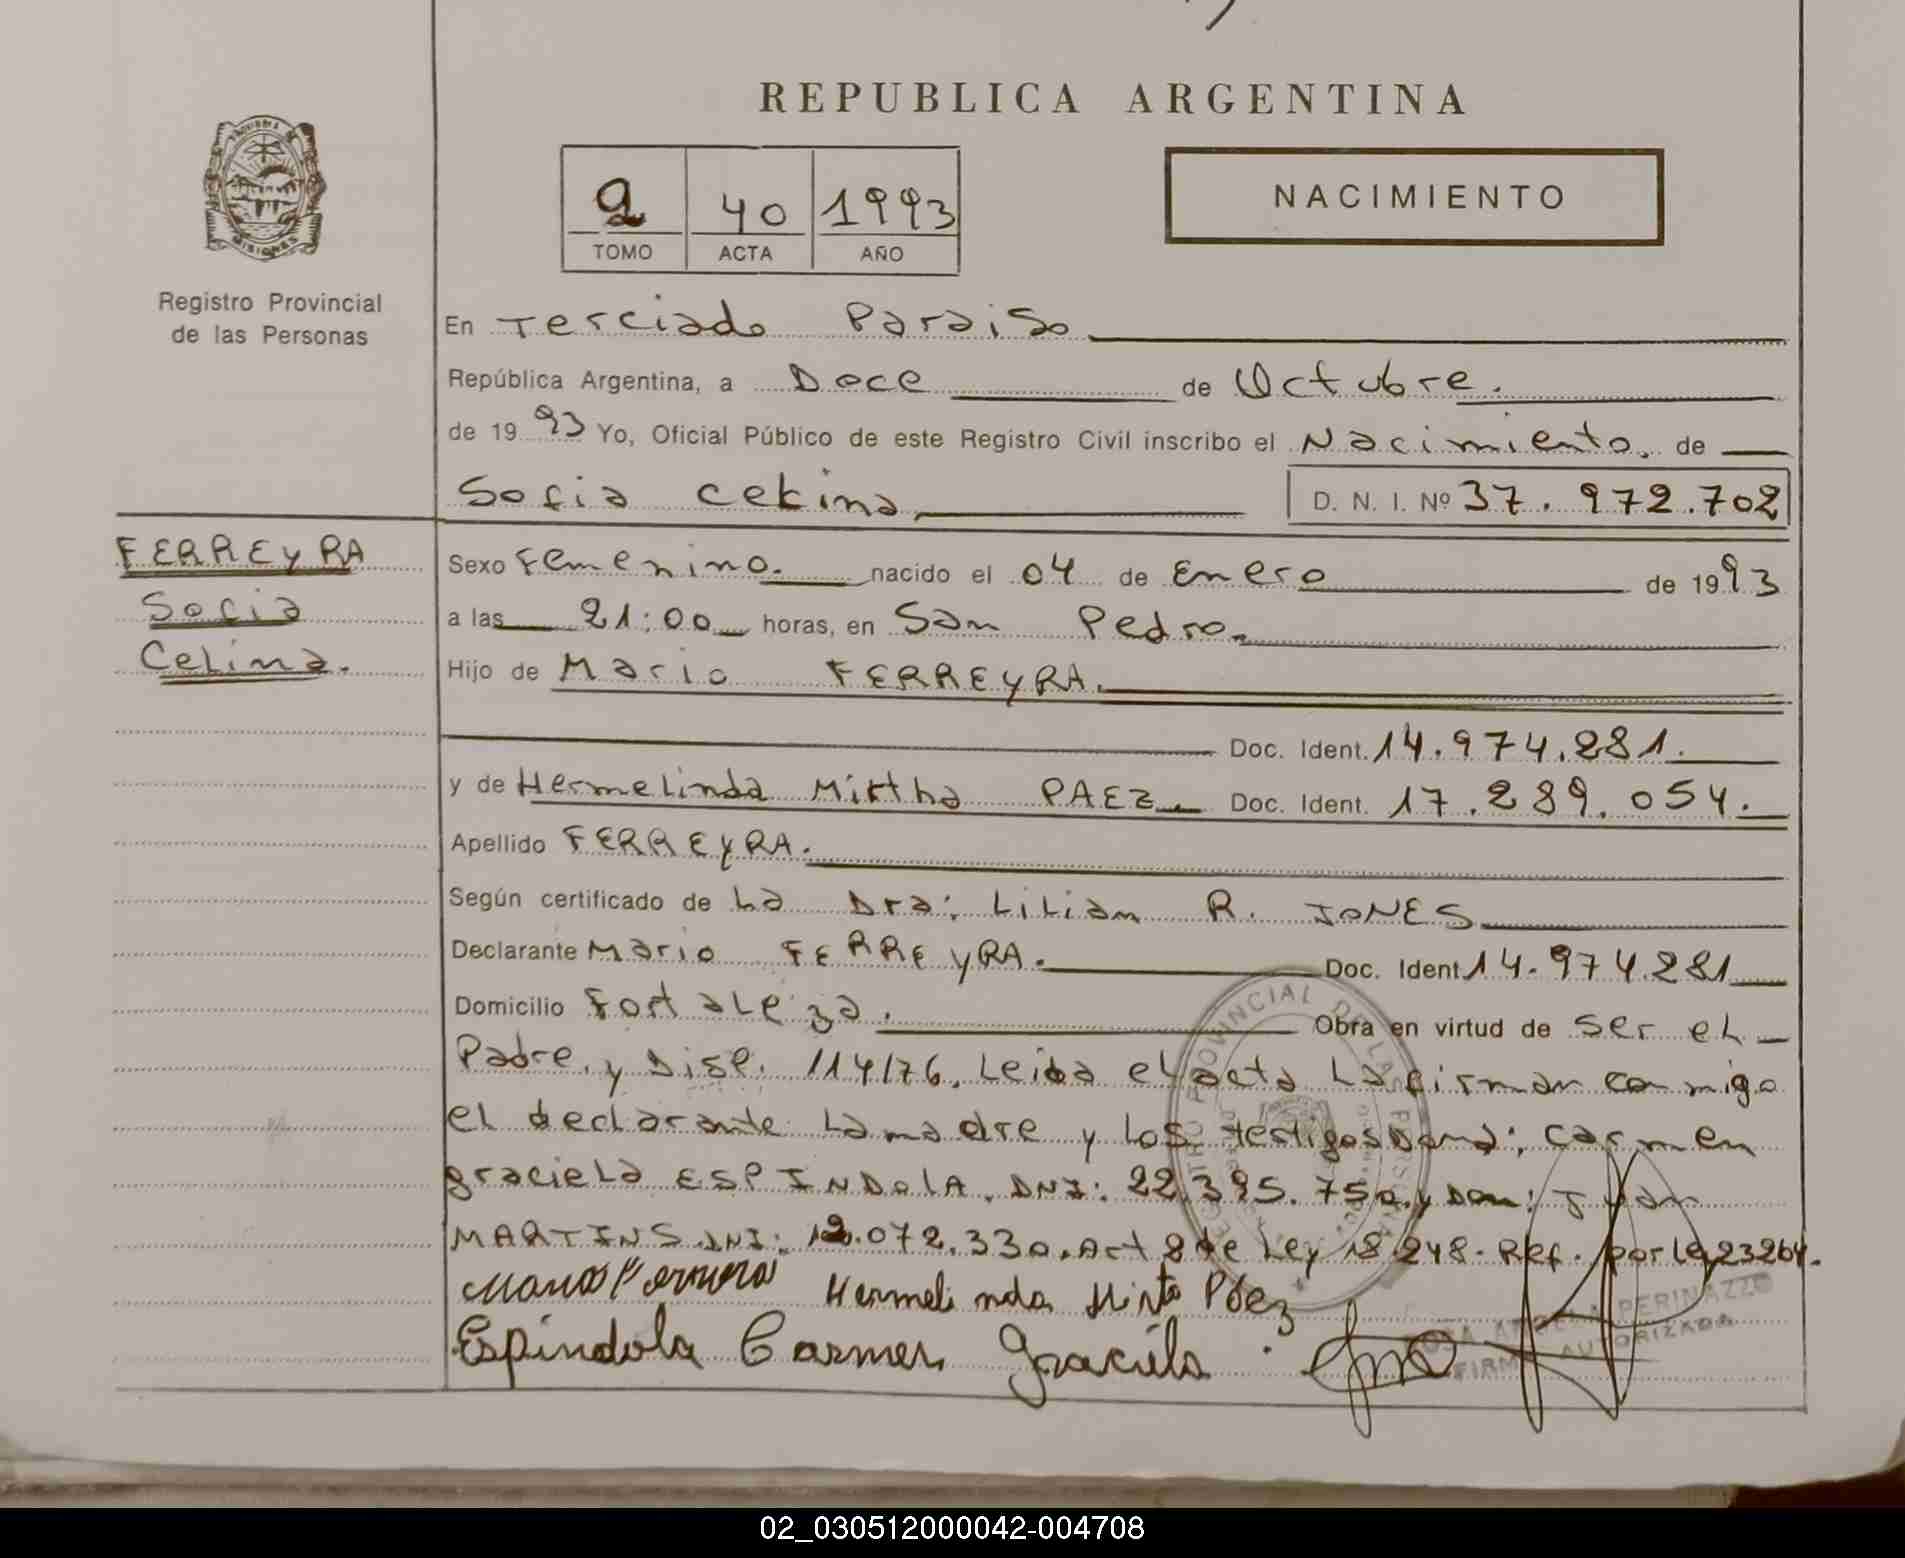 REPUBLICA ARGENTINA
PROVINCIA DE
MISIONES
Registro Provincial
de las Personas
2 40 1993
TOMO ACTA AÑO
NACIMIENTO
En Terciado Paraiso
República Argentina, a Doce de Octubre.
de 1993 Yo, Oficial Público de este Registro Civil inscribo el Nacimiento. de
Sofia Celina
D. N. I. Nº 37.972.702
FERREYRA
Sofia
Celina.
Sexo Femenino. nacido el 04 de Enero de 1993
a las 21:00 horas, en San Pedro.
Hijo de Mario FERREYRA.
Doc. Ident. 14.974.281.
y de Hermelinda Mirtha PAEZ. Doc. Ident. 17.289.054.
Apellido FERREYRA.
Según certificado de La Dra: Lilian R. JONES
Declarante Mario FERREYRA. Doc. Ident 14.974.281
Domicilio Fortaleza. Obra en virtud de ser el
Padre. y Disp. 114/76. Leida el acta La firman conmigo
el declarante La madre y Los testigos Dona: Carmen
graciela ESPINDOLA. DNI: 22.395.750. y Don: Juan
MARTINS. DNI: 12.072.330. Art 8 de Ley 18.248. Ref. por Ley 23264.
Mario Ferreyra Hermelinda Mirta Páez
Espindola Carmen Graciela
REGISTRO PROVINCIAL DE LAS PERSONAS
ROSA ANGELA PERINAZZO
FIRMA AUTORIZADA
02_030512000042-004708